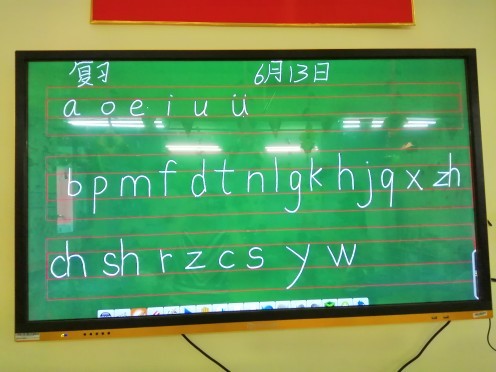 复习 6月13日
a o e i u ü
b p m f d t n l g k h j q x zh
ch sh r z c s y w